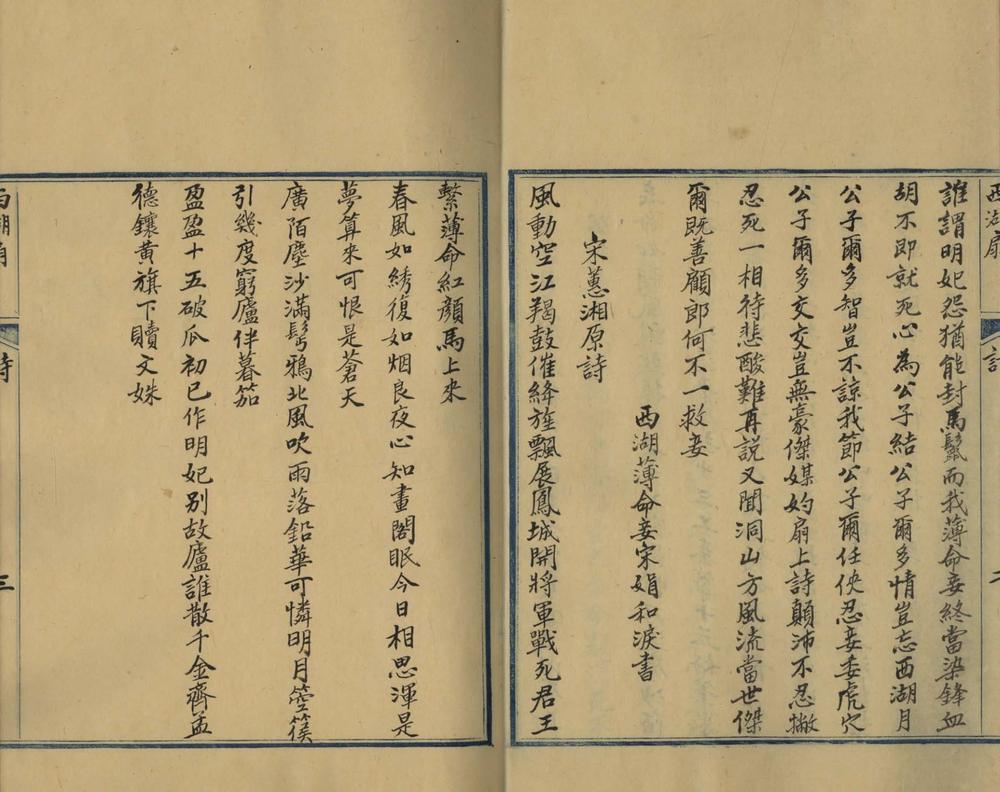 西湖扇
誰謂明妃怨猶能封馬鬣而我薄命妾終當染鋒血
胡不即就死心為公子結公子爾多情豈忘西湖月
公子爾多智豈不諒我節公子爾任俠忍妾委虎穴
公子爾多交交豈無豪傑媒妁扇上詩顛沛不忍撇
忍死一相待悲酸難再説又聞洞山方風流當世傑
爾既善顧郎何不一救妾
西湖薄命妾宋娟和淚書
宋蕙湘原詩
風動空江羯鼓催絳旌飄展鳳城開將軍戰死君王
繫薄命紅顏馬上來
春風如綉復如烟良夜心知畫閣眠今日相思渾是
夢算來可恨是蒼天
廣陌塵沙滿髩鴉北風吹雨落鉛華可憐明月箜篌
引幾度窮廬伴暮笳
盈盈十五破瓜初已作明妃別故廬誰散千金齊孟
德鑲黃旗下贖文姝
西湖扇
詩
三